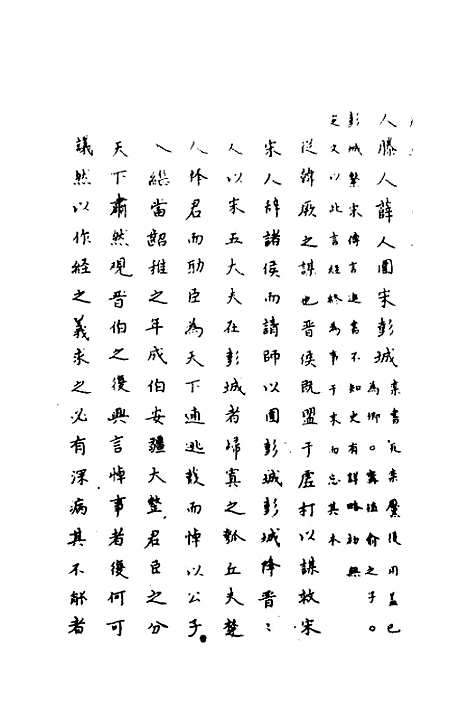 人滕人薛人圍宋彭城
為卿。甯殖俞之子。
彭城繫宋傳言追書不知史有詳略初無
從韓厥之謀也晉侯既盟于虛朾以謀救宋
宋人辭諸侯而請師以圍彭城彭城降晉〻
人以宋五大夫在彭城者歸寘之瓠丘夫楚
人降君而助臣為天下逋逃哉而悼以公子
入繼當齠稚之年成伯安疆大整君臣之分
天下肅然觀晉伯之復興言悼事者復何可
議然以作經之義求之必有深病其不能者